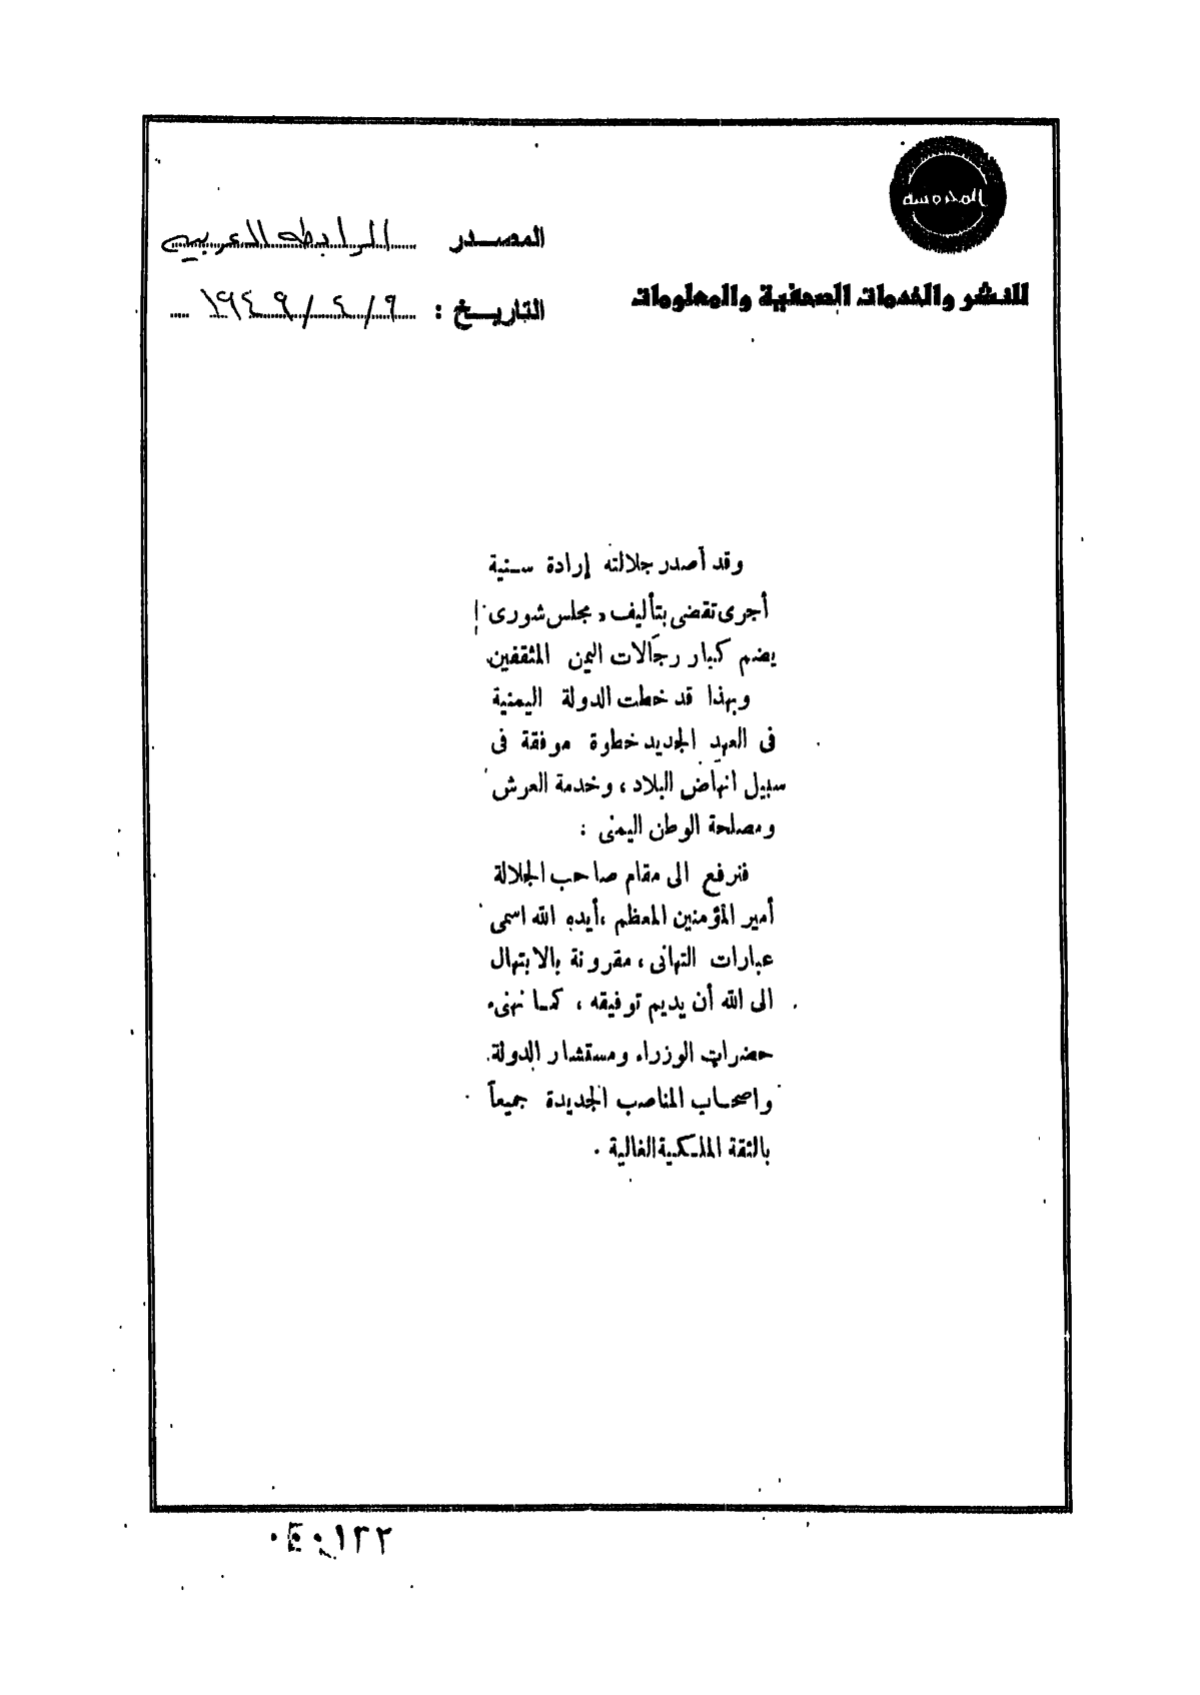 المحروسة
للنشر والخدمات الصحفية والمعلومات
المصدر الرابطه العربيه
التاريخ : ٩/٤/١٩٤٩
وقد أصدر جلالته إرادة سنية
أجرى تقضى بتأليف «مجلس شورى
يضم كبار رجالات اليمن المثقفين
وبهذا قد خطت الدولة اليمنية
فى العهد الجديد خطوة موفقة فى
سبيل انهاض البلاد ، وخدمة العرش
ومصلحة الوطن اليمنى :
فنرفع الى مقام صاحب الجلالة
أمير المؤمنين المعظم ، أيده الله اسمى
عبارات التهانى ، مقرونة بالابتهال
الى الله أن يديم توفيقه ، كما نهنىء
حضرات الوزراء ومستشار الدولة
واصحاب المناصب الجديدة جميعاً
بالثقة الملكية الغالية .